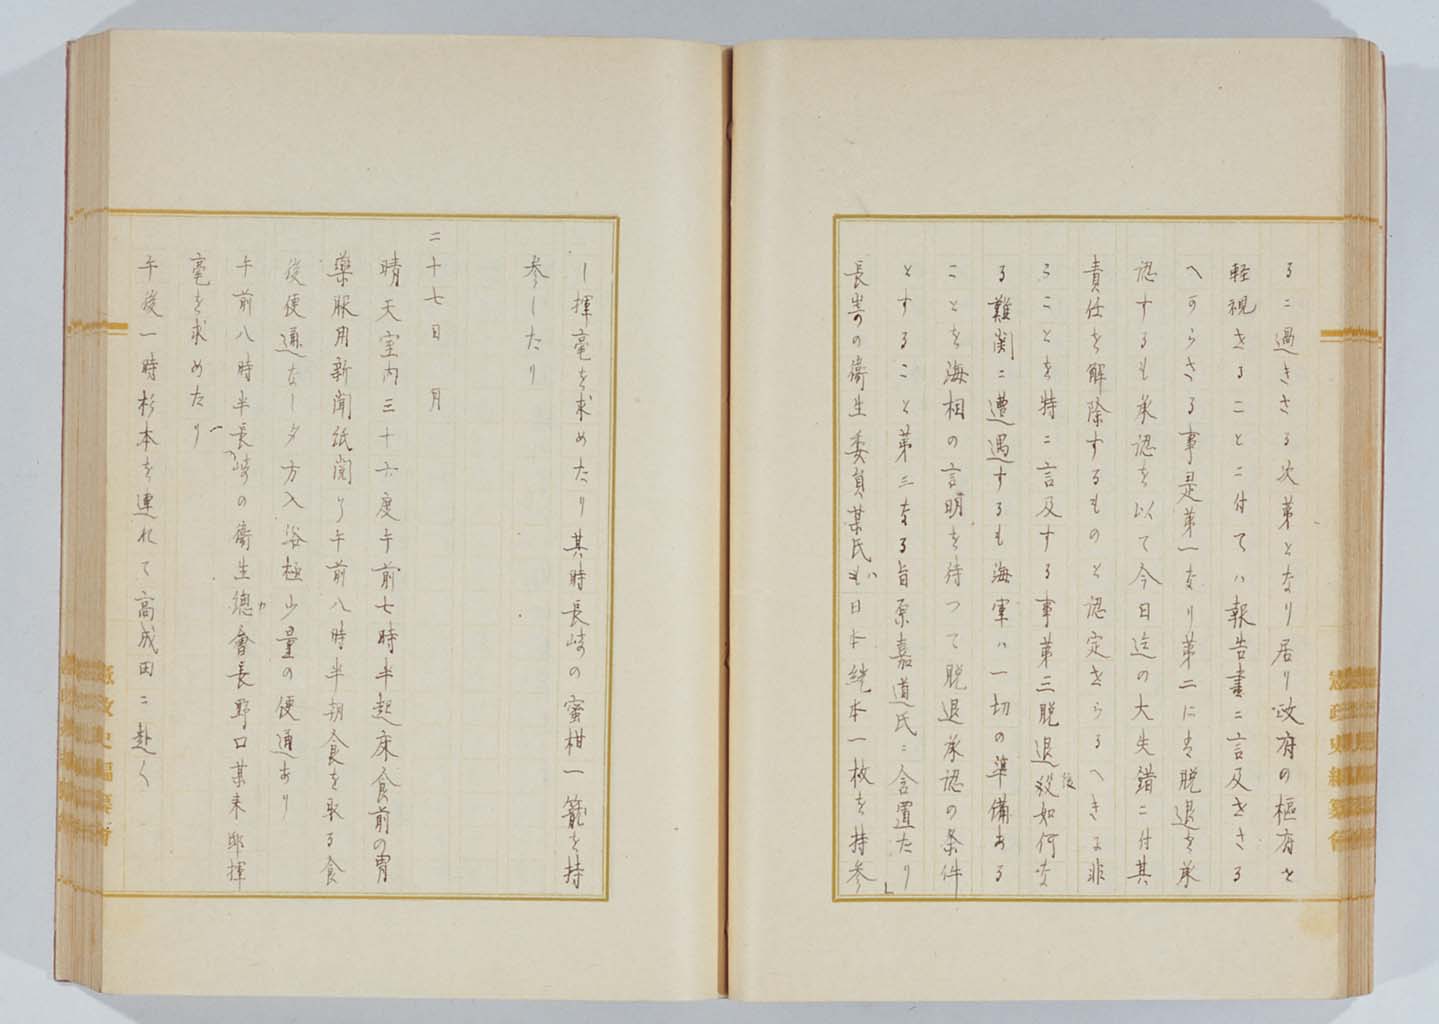 るに過きさる次第となり居り政府の枢府を
軽視さることに付ては報告書に言及せさる
へからさる事是第一なり第二には脱退を承
認するも承認を以て今日迄の大失錯に付其
責任を解除するものと認定せらるへきに非
ることを特に言及する事第三脱退後如何な
る難関に遭遇するも海軍は一切の準備ある
ことを海相の言明を待つて脱退承認の条件
とすること第三なる旨原嘉道氏に含置たり」
長崎の衛生委員某氏が日本絖本一枚を持参
し揮毫を求めたり其時長崎の蜜柑一籠を持
参したり
二十七日 月
晴天室内三十六度午前七時半起床食前の胃
薬服用新聞紙閲り午前八時半朝食を取る食
後便通なし夕方入浴極少量の便通あり
午前八時半長崎の衛生總會長野口某来邸揮
毫を求めたり
午後一時杉本を連れて高成田に赴く
憲政史編纂会
憲政史編纂会